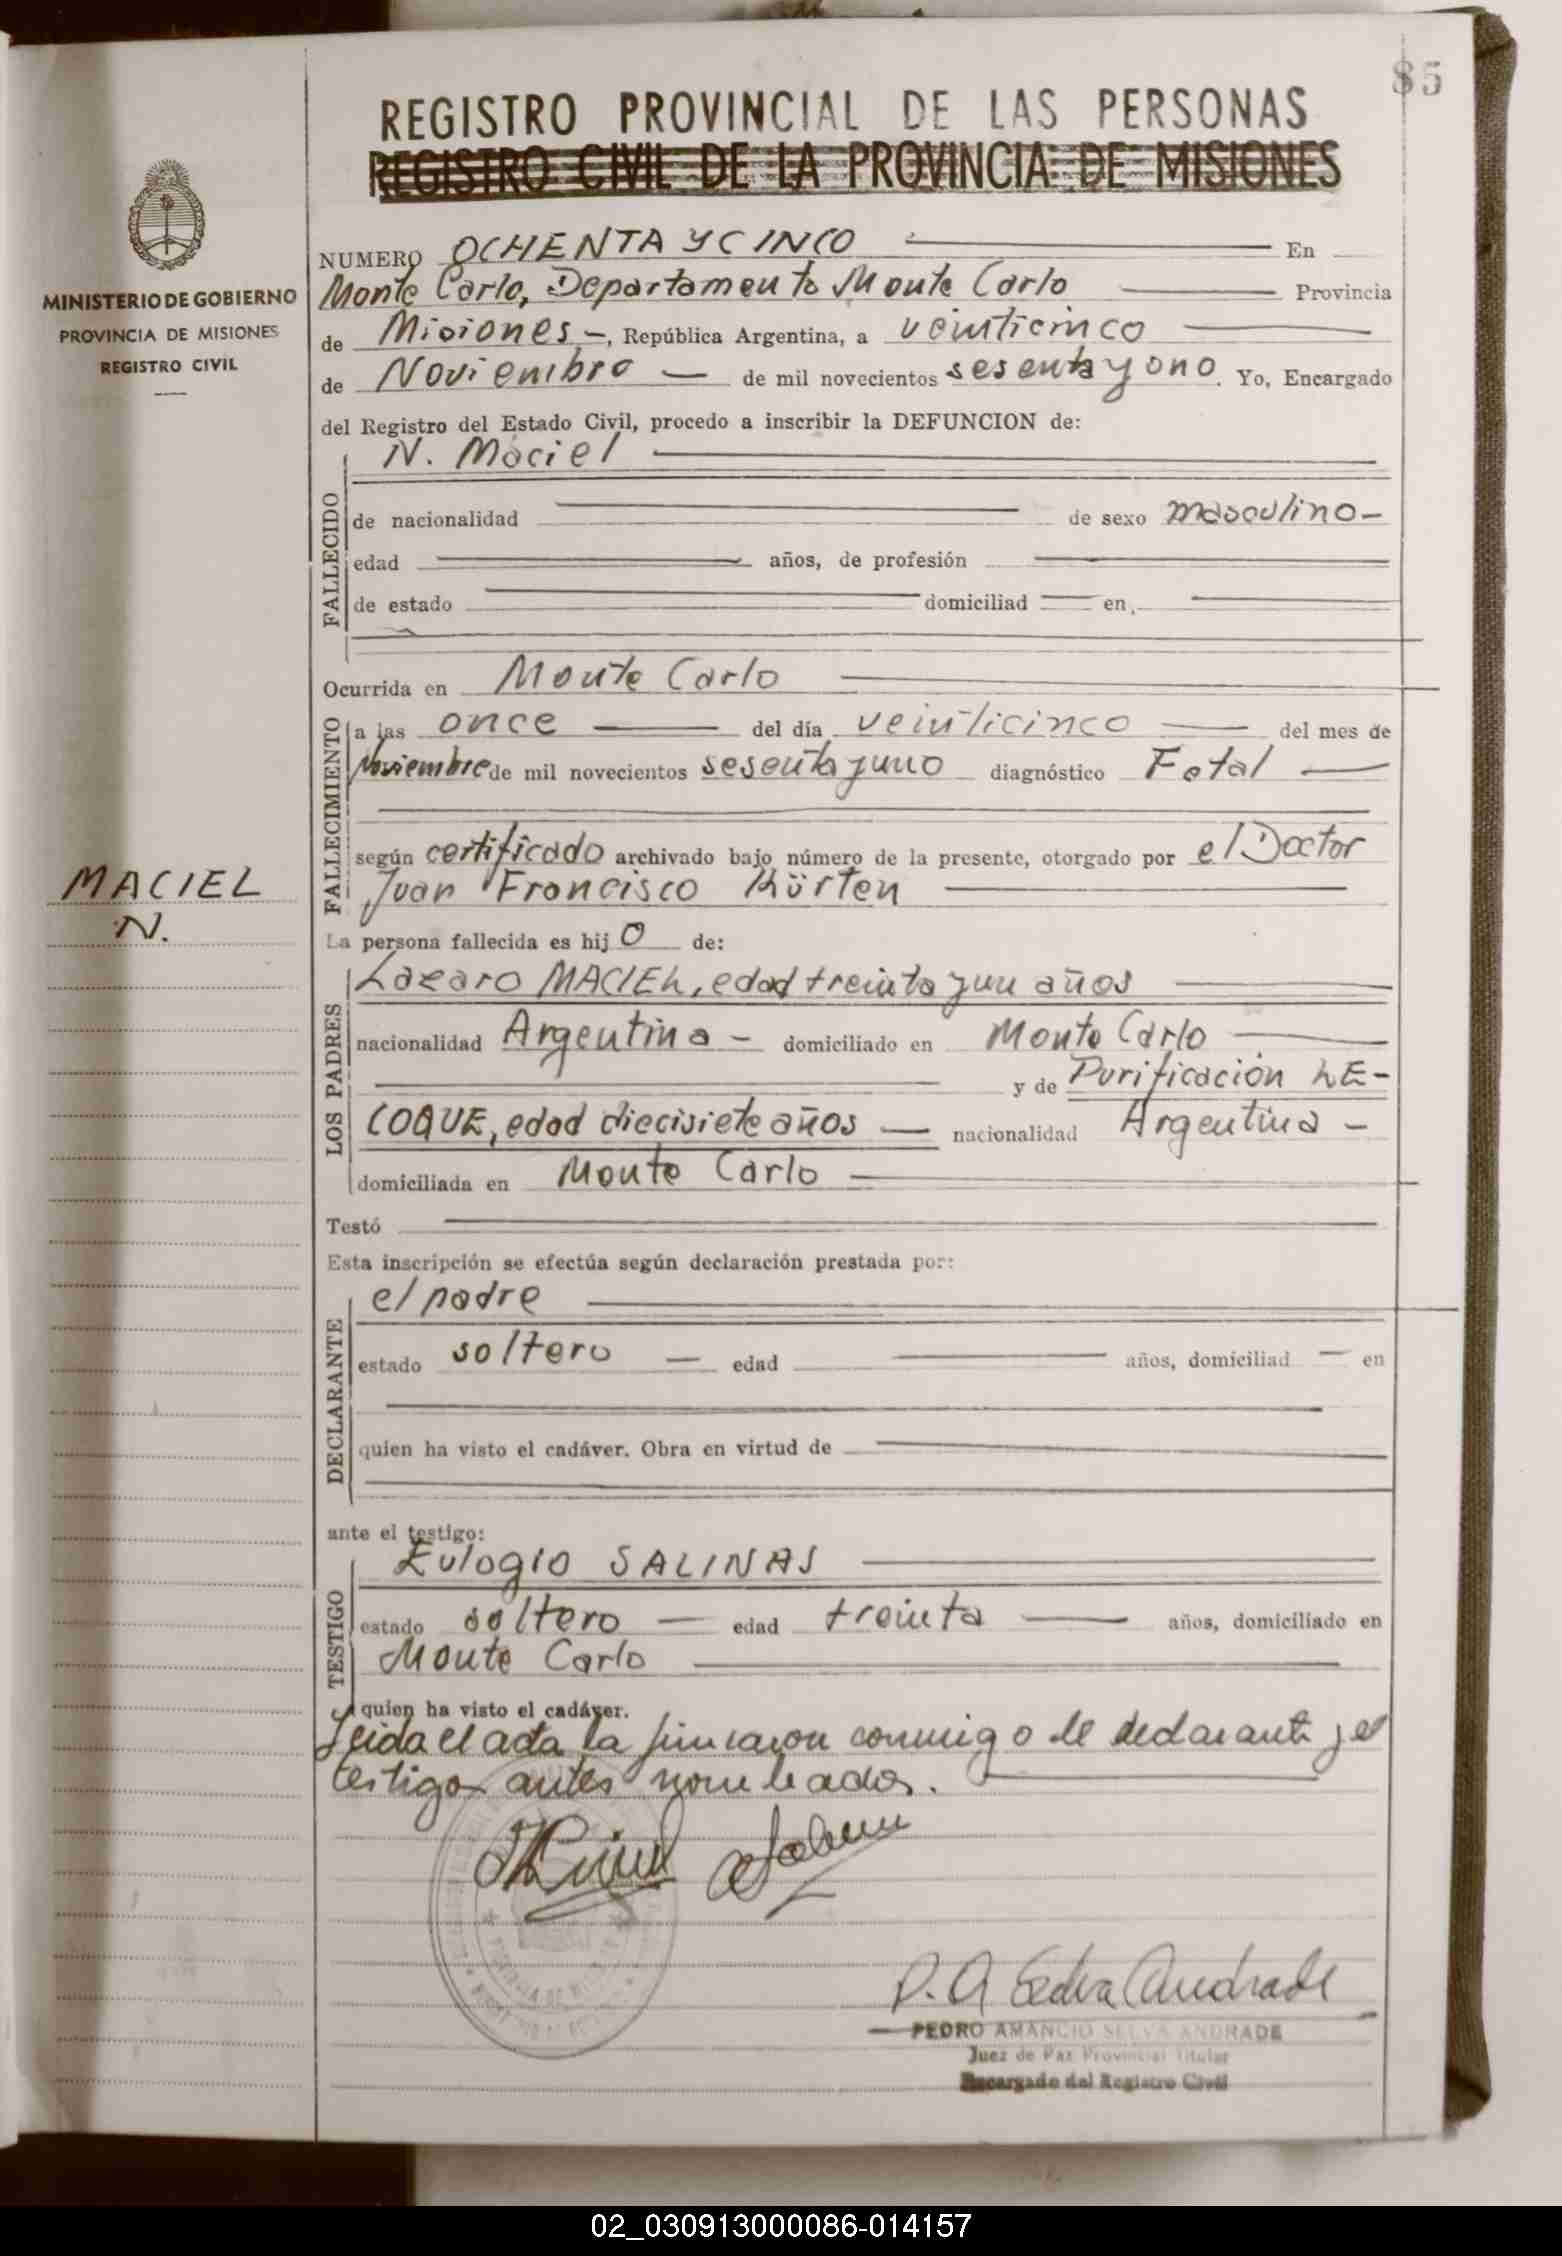 85
REGISTRO PROVINCIAL DE LAS PERSONAS
REGISTRO CIVIL DE LA PROVINCIA DE MISIONES
MINISTERIO DE GOBIERNO
PROVINCIA DE MISIONES
REGISTRO CIVIL
NUMERO OCHENTA Y CINCO En
Monte Carlo, Departamento Monte Carlo Provincia
de Misiones -, República Argentina, a veinticinco
de Noviembre de mil novecientos sesenta y uno. Yo, Encargado
del Registro del Estado Civil, procedo a inscribir la DEFUNCION de:
FALLECIDO
N. Maciel
de nacionalidad de sexo masculino -
edad años, de profesión
de estado domiciliad en,
Ocurrida en Monte Carlo
FALLECIMIENTO
a las once del día veinticinco del mes de
Noviembre de mil novecientos sesenta y uno diagnóstico Fetal
según certificado archivado bajo número de la presente, otorgado por el Doctor
Juan Francisco Kürten
MACIEL
N.
La persona fallecida es hijo de:
LOS PADRES
Lazaro MACIEL, edad treinta y un años
nacionalidad Argentina - domiciliado en Monte Carlo
y de Purificación LE-
COQUE, edad diecisiete años nacionalidad Argentina -
domiciliada en Monte Carlo
Testó
Esta inscripción se efectúa según declaración prestada por:
DECLARANTE
el padre
estado soltero edad años, domiciliad en
quien ha visto el cadáver. Obra en virtud de
ante el testigo:
TESTIGO
Eulogio SALINAS
estado soltero edad treinta años, domiciliado en
Monte Carlo
quien ha visto el cadáver.
Leida el acta la firmaron conmigo el declarante y el
testigo antes nombrados.
P. A Selva Andrade
PEDRO AMANCIO SELVA ANDRADE
Juez de Paz Provincial Titular
Encargado del Registro Civil
02_030913000086-014157